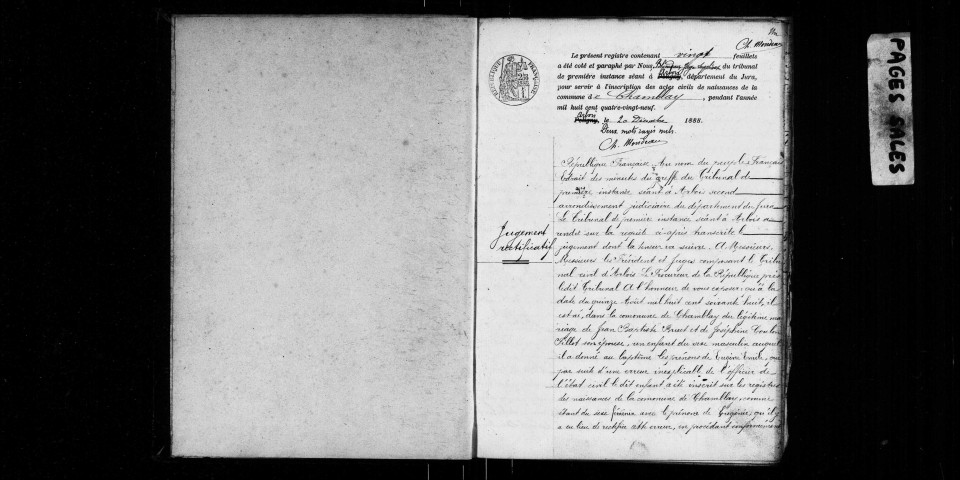 Ch. Mondeau
Le présent registre contenant vingt feuillets
a été coté et paraphé par Nous, du tribunal
de première instance séant à Arbois, département du Jura,
pour servir à l'inscription des actes civils de naissances de la
commune de Chamblay, pendant l'année
mil huit cent quatre-vingt-neuf.
Arbois, le 20 Décembre 1888.
Deux mots rayés nuls.
Ch. Mondeau
RÉPUBLIQUE FRANÇAISE
République Française. Au nom du peuple Français
Extrait des minutes du greffe du Tribunal de
première instance séant à Arbois second
arrondissement judiciaire du département du Jura
Le Tribunal de première instance séant à Arbois a
rendu sur la requête ci-après transcrite le
jugement dont la teneur va suivre. A Messieurs,
Messieurs les Président et Juges composant le Tribu-
nal civil d'Arbois. Le Procureur de la République près
ledit Tribunal A l'honneur de vous exposer: ou'à la
date du quinze Août mil huit cent soixante huit, il
est né, dans la commune de Chamblay du légitime ma-
riage de Jean Baptiste et de Joséphine
Billot son épouse, un enfant du sexe masculin auquel
il a donné au baptême les prénoms de Eugène Emile, que
par suite d'une erreur inexplicable de l'officier de
l'état civil ledit enfant a été inscrit sur les registres
des naissances de la commune de Chamblay, comme
étant du sexe féminin avec le prénom de Eugénie; qu'il y
a eu lieu de rectifier cette erreur, en procédant conformément
Jugement
rectificatif
PAGES SALES